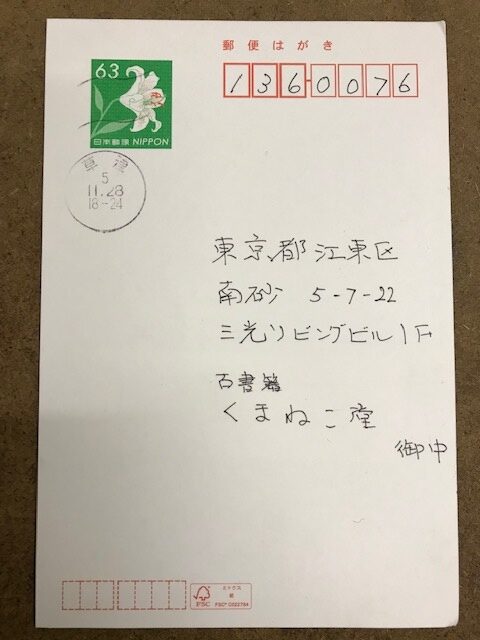 郵便はがき
63
日本郵便 NIPPON
1360076
草津
5
11.28
18-24
東京都江東区
南砂 5-7-22
三光リビングビル1F
古書籍
くまねこ堂
御中
ミックス
紙
FSC
FSC® C022784